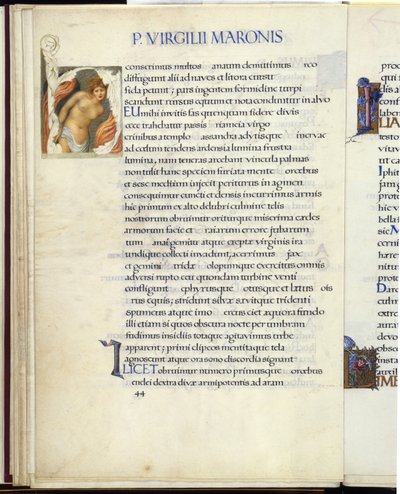 P. VIRGILII MARONIS
conserimus multos anaum demittimus rco
diffugiunt alii ad naves et litora cursu
fida petunt ; pars ingentem formidine turpi
scandunt rursus equum et nota conduntur in alvo
EU nihil invitis fas quenquam fidere divis
ecce trahebatur passis riameia virgo
crinibus a templo assandra adytisque inervae
ad coelum tendens ardentia lumina frustra
lumina, nam teneras arcebant vincula palmas
non tulit hanc speciem furiata mente oroebus
et sese medium injecit periturus in agmen
consequimur cuncti et densis incurrimus armis
hic primum ex alto delubri culmine telis
nostrorum obruimur oriturque miserrima caedes
armorum facie et raiarum errore jubarum
tum anai gemitu atque erepta virginis ira
undique collecti invadunt, acerrimus jax
et gemini tridae olopumque exercitus omnis
adversi rupto ceu quondam turbine venti
confligunt ephyrusque otusque et laetus ois
rus equis; stridunt silvae saevitque tridenti
spumeus atque imo ereus ciet aequora fundo
illi etiam si quos obscura nocte per umbram
fudimus insidiis totaque agitavimus urbe
apparent ; primi clipeos mentitaque tela
agnoscunt atque ora sono discordia signant
ILICET obruimur numero primusque oroebus
enelei dextra divae armipotentis ad aram
44